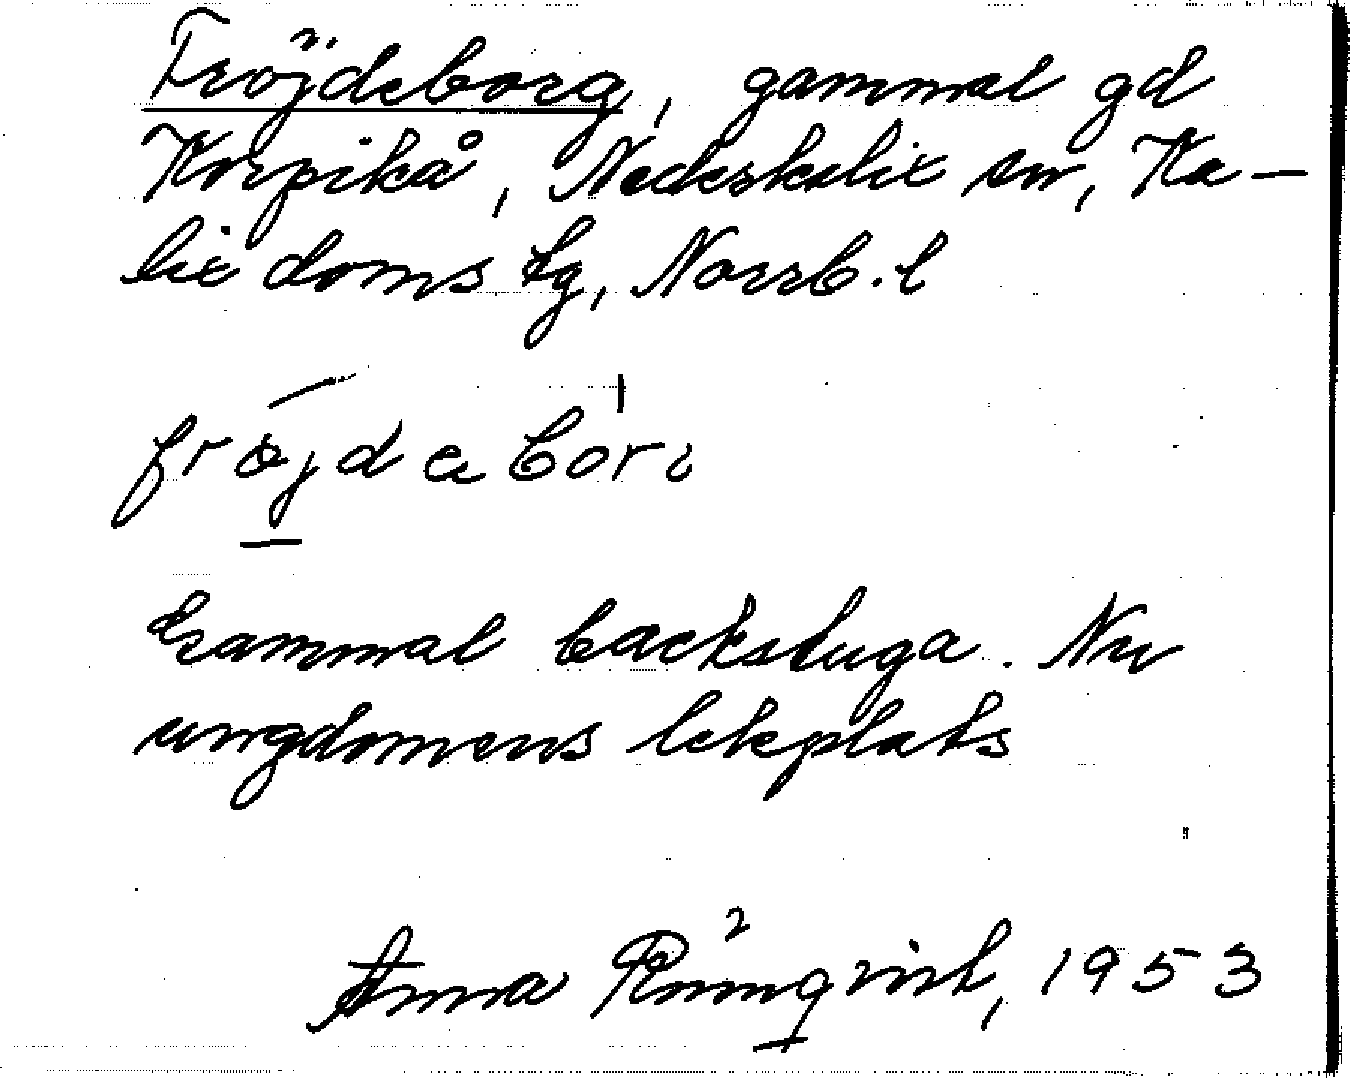 Fröjdeborg, gammal gd
Korpikå, Nederkalix sn, Ka-
lix doms tg, Norrb. l
Gammal backstuga. Nu
ungdomens lekplats
Anna Rönnqvist, 1953